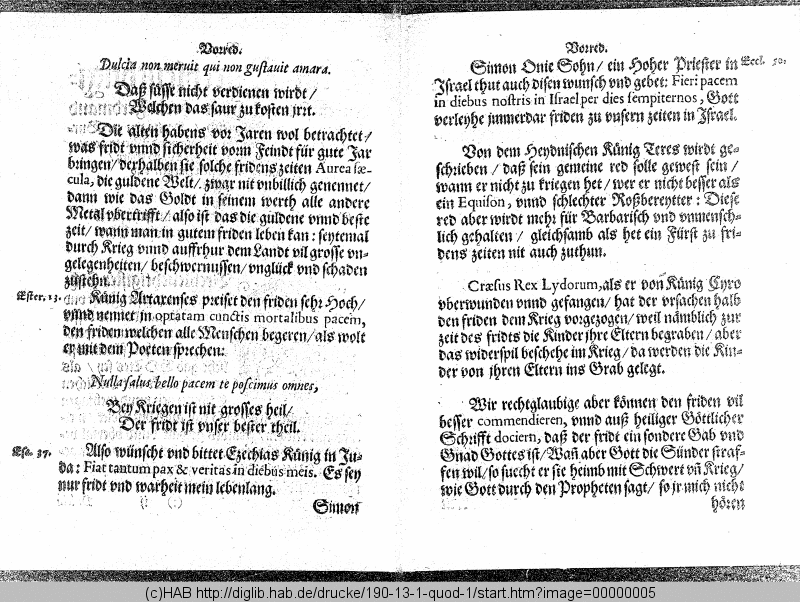 Vorred.
Dulcia non meruit qui non gustauit amara.
Daß süsse nicht verdienen wirdt/
Welchen das saur zu kosten jrrt.
Die alten habens vor Jaren wol betrachtet/
was fridt vnnd sicherheit vorm Feindt für gute Jar
bringen/ derhalben sie solche fridens zeiten Aurea sæ-
cula, die guldene Welt/ zwar nit vnbillich genennet/
dann wie das Goldt in seinem werth alle andere
Metal vbertrifft/ also ist das die güldene vnnd beste
zeit/ wann man in gutem friden leben kan: seytemal
durch Krieg vnnd auffrhur dem Landt vil grosse vn-
gelegenheiten/ beschwernussen/ vnglück vnd schaden
zustehn.
Ester. 13.
Künig Artaxenses preiset den friden sehr Hoch/
vnnd nennet in optatam cunctis mortalibus pacem,
den friden welchen alle Menschen begeren/ als wolt
er mit dem Poeten sprechen:
Nulla salus bello pacem te poscimus omnes,
Bey Kriegen ist nit grosses heil/
Der fridt ist vnser bester theil.
Esa. 37.
Also wünscht vnd bittet Ezechias Künig in Ju-
da: Fiat tantum pax & veritas in diebus meis. Es sey
nur fridt vnd warheit mein lebenlang.
Simon
Vorred.
Simon Onie Sohn/ ein Hoher Priester in
Eccl. 50.
Israel thut auch disen wunsch vnd gebet: Fieri pacem
in diebus nostris in Israel per dies sempiternos, Gott
verleyhe jmmerdar friden zu vnsern zeiten in Israel.
Von dem Heydnischen Künig Teres wirdt ge-
schrieben/ daß sein gemeine red solle gewest sein/
wann er nicht zu kriegen het/ wer er nicht besser als
ein Equison, vnnd schlechter Roßbereytter: Diese
red aber wirdt mehr für Barbarisch vnd vnmensch-
lich gehalten/ gleichsamb als het ein Fürst zu fri-
dens zeiten nit auch zuthun.
Cræsus Rex Lydorum, als er von Künig Cyro
vberwunden vnnd gefangen/ hat der vrsachen halb
den friden dem Krieg vorgezogen/ weil nämblich zur
zeit des fridts die Kinder jhre Eltern begraben/ aber
das widerspil beschehe im Krieg/ da werden die Kin-
der von jhren Eltern ins Grab gelegt.
Wir rechtglaubige aber können den friden vil
besser commendieren, vnnd auß heiliger Göttlicher
Schrifft dociern, daß der fridt ein sondere Gab vnd
Gnad Gottes ist/ Wañ aber Gott die Sünder straf-
fen wil/ so sucht er sie heimb mit Schwert vñ Krieg/
wie Gott durch den Propheten sagt/ so jr mich nicht
hören
(c)HAB http://diglib.hab.de/drucke/190-13-1-quod-1/start.htm?image=00000005